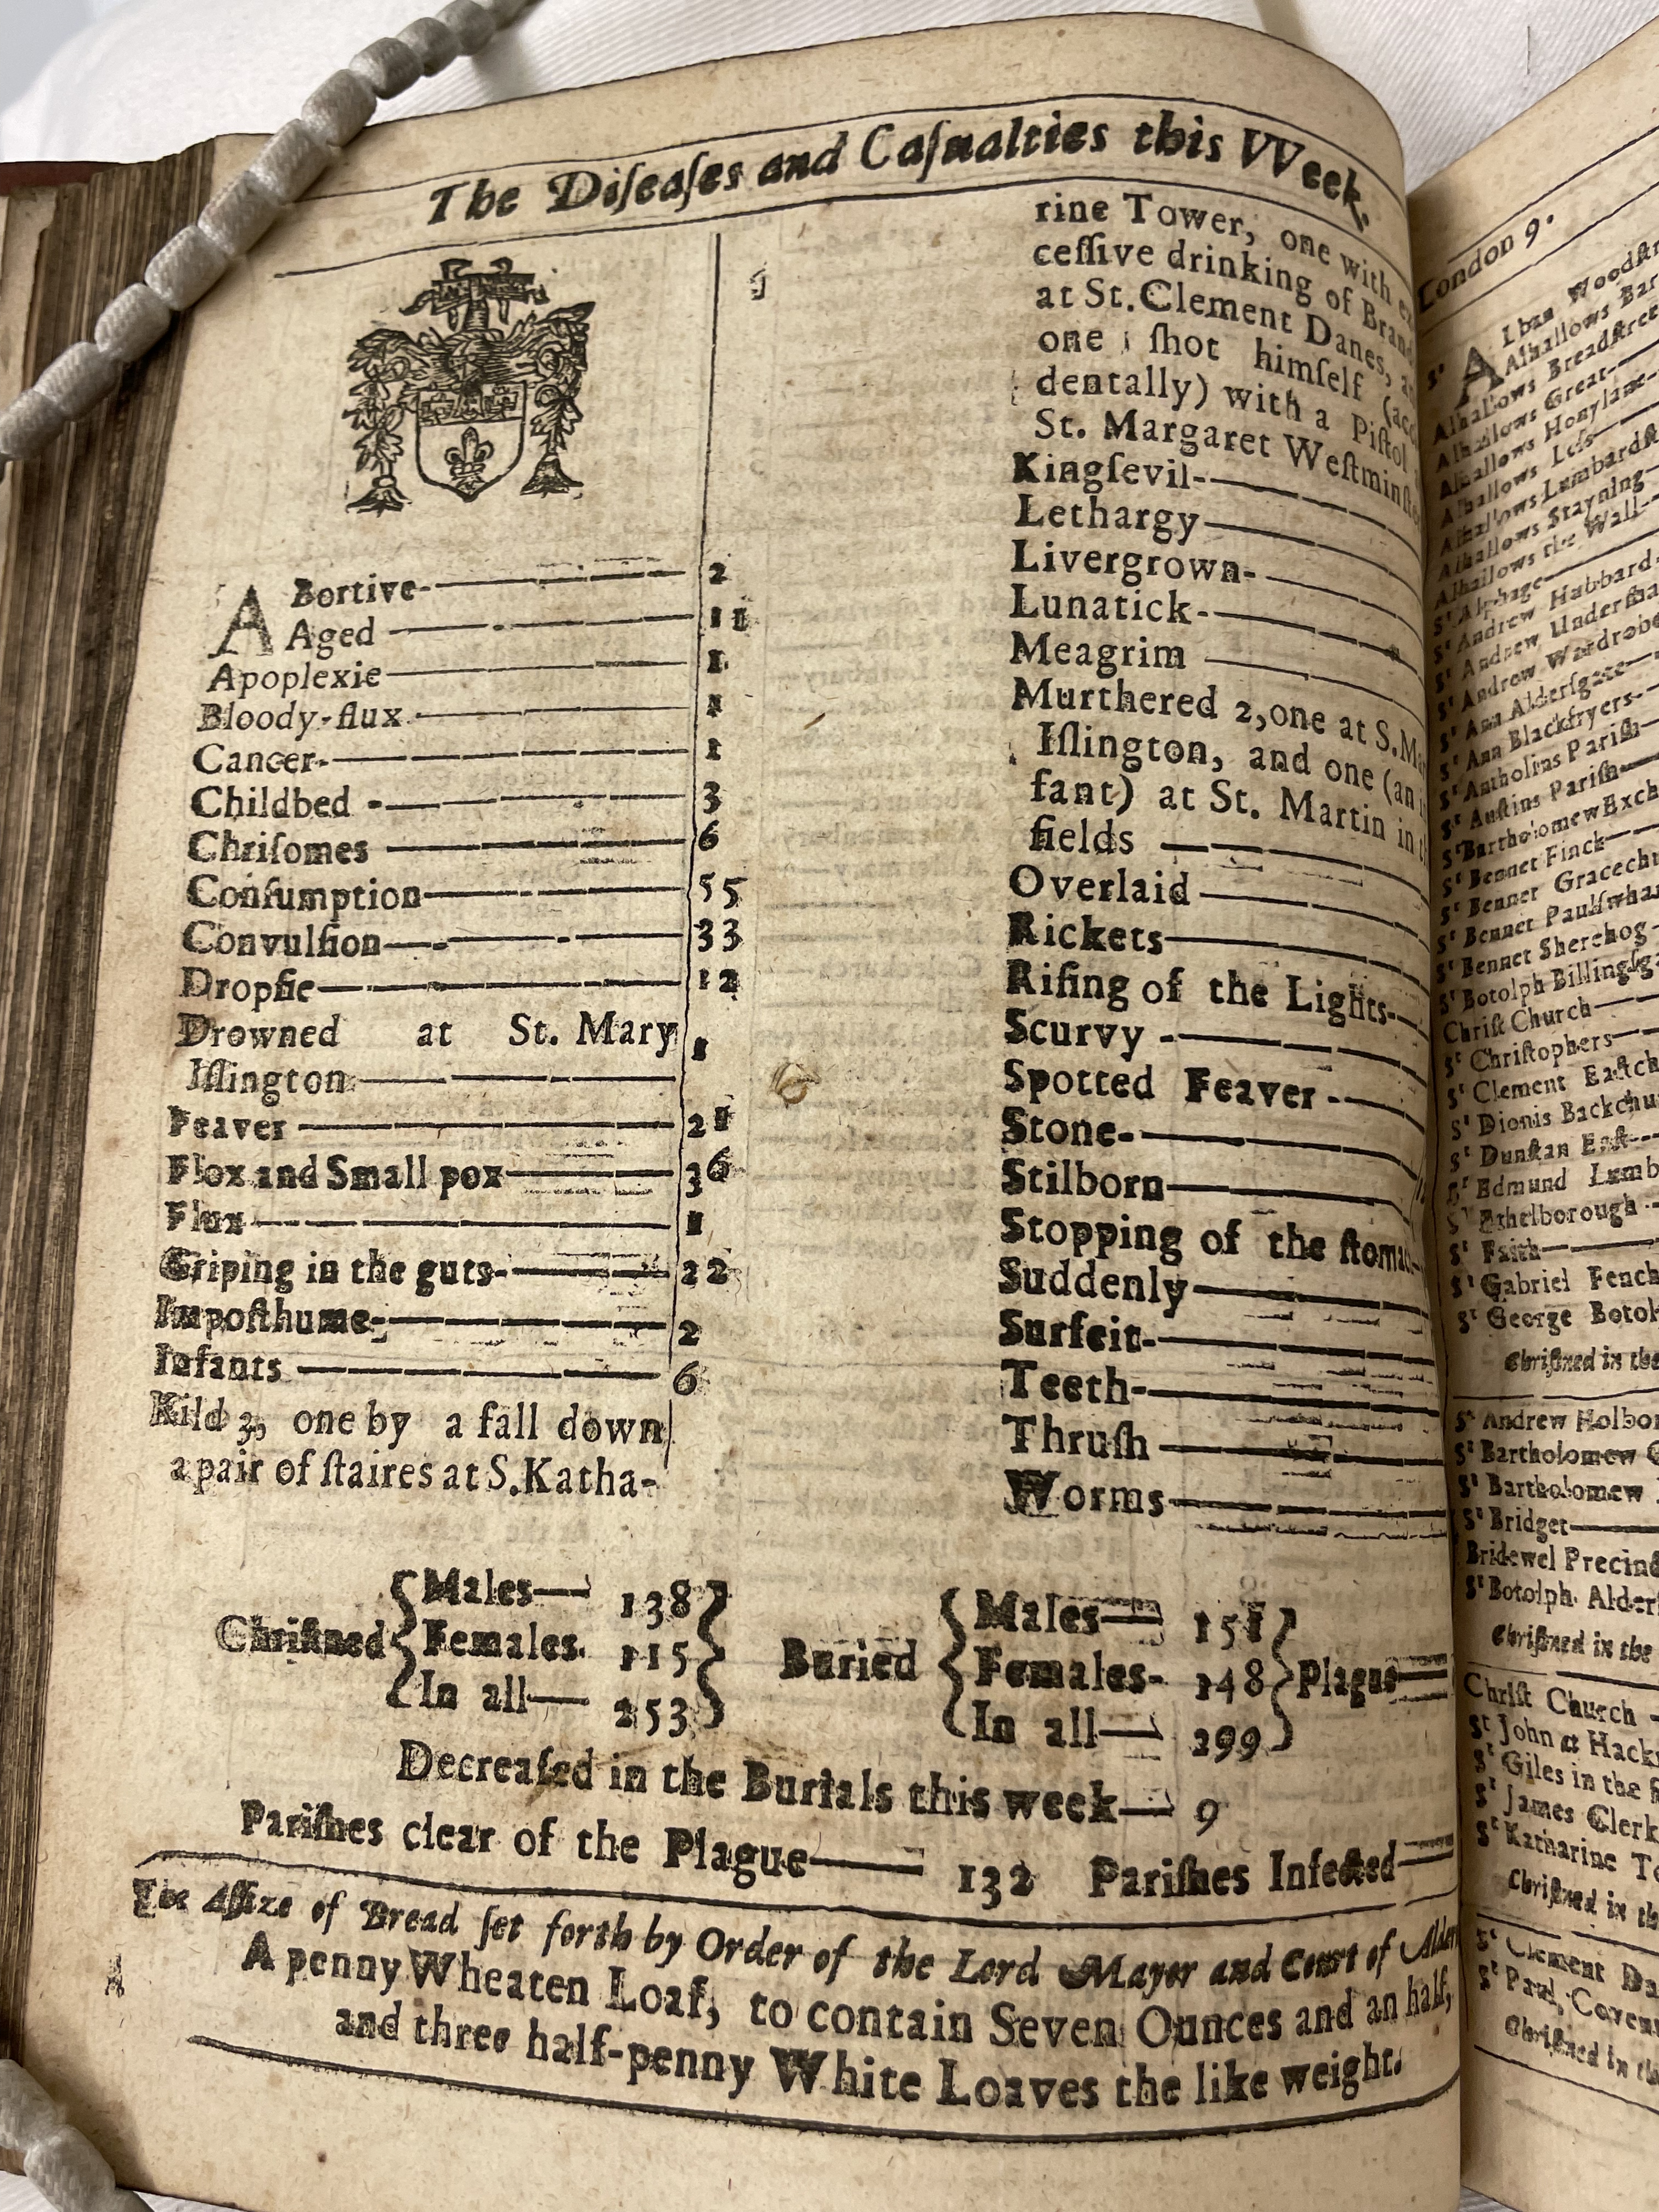 The Diſeaſes and Caſualties this VVeek.
ABortive 2
Aged 11
Apoplexie 1
Bloody-flux 1
Cancer 1
Childbed 3
Chriſomes 6
Conſumption 55
Convulſion 33
Dropſie 12
Drowned at St. Mary
Iſlington 1
Feaver 21
Flox and Small pox 36
Flux 1
Griping in the guts 22
Impoſthume 2
Infants 6
Kild 3, one by a fall down
a pair of ſtaires at S.Katha-
rine Tower, one with ex
ceſſive drinking of Brand
at St.Clement Danes,
one ſhot himſelf (acc
dentally) with a Piſtol
St. Margaret Weſtminſter
Kingſevil
Lethargy
Livergrown
Lunatick
Meagrim
Murthered 2, one at S.M
Iſlington, and one (an
fant) at St. Martin in
fields
Overlaid
Rickets
Riſing of the Lights
Scurvy
Spotted Feaver
Stone
Stilborn
Stopping of the ſtomac
Suddenly
Surfeit
Teeth
Thruſh
Worms
Chriſtned Males 138
Females 115
In all 253
Buried Males 151
Females 148
In all 299
Plague
Decreaſed in the Burials this week 9
Pariſhes clear of the Plague 132 Pariſhes Infected
The Aſſize of Bread ſet forth by Order of the Lord Mayor and Court of Alder
A penny Wheaten Loaf, to contain Seven Ounces and an half,
and three half-penny White Loaves the like weight.
London 9.
St Alban Woodſtr
Alhallows Bar
Alhallows Breadſtreet
Alhallows Great
Alhallows Honylane
Alhallows Leſs
Alhallows Lumbardſt
Alhallows Stayning
Alhallows the Wall
St Alphage
St Andrew Hubbard
St Andrew Underſha
St Andrew Wardrobe
St Ann Alderſgate
St Ann Blackfryers
St Antholins Pariſh
St Auſtins Pariſh
St Bartholomew Exch
St Bennet Finck
St Bennet Gracech
St Bennet Paulſwha
St Bennet Sherehog
St Botolph Billingſga
Chriſt Church
St Chriſtophers
St Clement Eaſtch
St Dionis Backchu
St Dunſtan Eaſt
St Edmund Lumb
St Ethelborough
St Faith
St Gabriel Fench
St George Botol
Chriſtned in the
St Andrew Holbor
St Bartholomew G
St Bartholomew
St Bridget
Bridewel Precinct
St Botolph Alderſ
Chriſtned in the
Chriſt Church
St John at Hackn
St Giles in the
St James Clerk
St Katharine To
Chriſtned in th
St Clement Da
St Paul Coven
Chriſtned in the